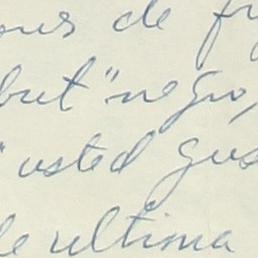 de
but "negro,
"usted gus
de ultima